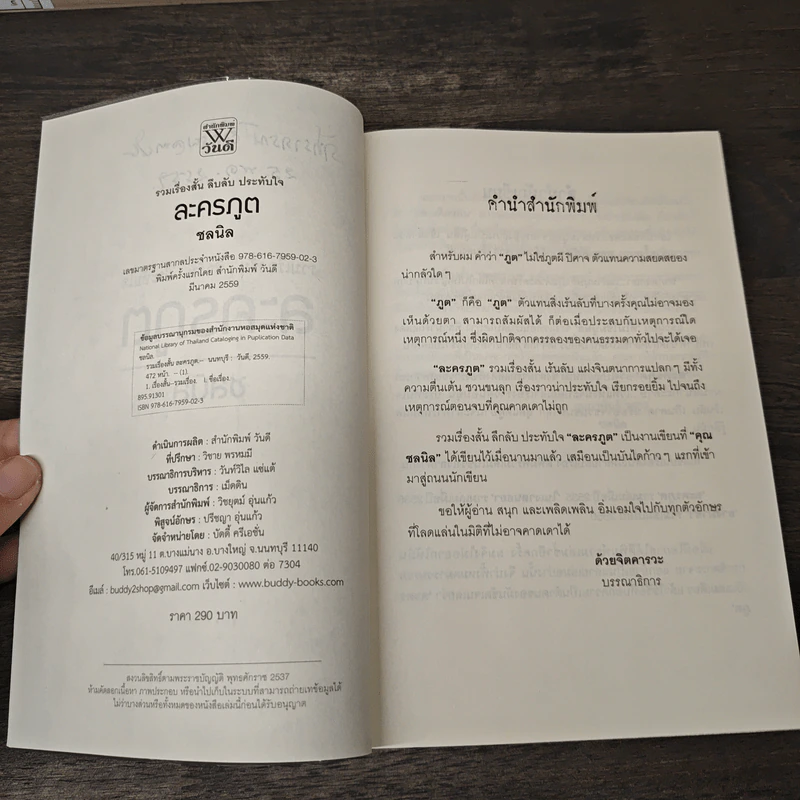 สำนักพิมพ์
W
วันดี
รวมเรื่องสั้น ลึบลับ ประทับใจ
ละครภูต
ชลนิล
เลขมาตรฐานสากลประจำหนังสือ 978-616-7959-02-3
พิมพ์ครั้งแรกโดย สำนักพิมพ์ วันดี
มีนาคม 2559
ข้อมูลบรรณานุกรมของสำนักงานหอสมุดแห่งชาติ
National Library of Thailand Cataloging in Puplication Data
ชลนิล
รวมเรื่องสั้น ละครภูต.-- นนทบุรี : วันดี, 2559.
472 หน้า. -- (1).
1. เรื่องสั้น-รวมเรื่อง. I. ชื่อเรื่อง.
895.91301
ISBN 978-616-7959-02-3
ดำเนินการผลิต : สำนักพิมพ์ วันดี
ที่ปรึกษา : วิชาย พรหมมี
บรรณาธิการบริหาร : วันทัวิไล แซ่แต้
บรรณาธิการ : เม็ดดิน
ผู้จัดการสำนักพิมพ์ : วิชยุตม์ อุ่นแก้ว
พิสูจน์อักษร : ปรีชญา อุ่นแก้ว
จัดจำหน่ายโดย : บัดดี้ ครีเอชั่น
40/315 หมู่ 11 ต.บางแม่นาง อ.บางใหญ่ จ.นนทบุรี 11140
โทร.061-5109497 แฟกซ์.02-9030080 ต่อ 7304
อีเมล์ : buddy2shop@gmail.com เว็บไซต์ : www.buddy-books.com
ราคา 290 บาท
สงวนลิขสิทธิ์ตามพระราชบัญญัติ พุทธศักราช 2537
ห้ามคัดลอกเนื้อหา ภาพประกอบ หรือนำไปเก็บในระบบที่สามารถถ่ายเทข้อมูลได้
ไม่ว่าบางส่วนหรือทั้งหมดของหนังสือเล่มนี้ก่อนได้รับอนุญาต
คำนำสำนักพิมพ์
สำหรับผม คำว่า "ภูต" ไม่ใช่ภูตผี ปีศาจ ตัวแทนความสยดสยอง
น่ากลัวใด ๆ
"ภูต" ก็คือ "ภูต" ตัวแทนสิ่งเร้นลับที่บางครั้งคุณไม่อาจมอง
เห็นด้วยตา สามารถสัมผัสได้ ก็ต่อเมื่อประสบกับเหตุการณ์ใด
เหตุการณ์หนึ่ง ซึ่งผิดปกติจากครรลองของคนธรรมดาทั่วไปจะได้เจอ
"ละครภูต" รวมเรื่องสั้น เร้นลับ แฝงจินตนาการแปลก ๆ มีทั้ง
ความตื่นเต้น ชวนขนลุก เรื่องราวน่าประทับใจ เรียกรอยยิ้ม ไปจนถึง
เหตุการณ์ตอนจบที่คุณคาดเดาไม่ถูก
รวมเรื่องสั้น ลึกลับ ประทับใจ "ละครภูต" เป็นงานเขียนที่ "คุณ
ชลนิล" ได้เขียนไว้เมื่อนานมาแล้ว เสมือนเป็นบันไดก้าว ๆ แรกที่เข้า
มาสู่ถนนนักเขียน
ขอให้ผู้อ่าน สนุก และเพลิดเพลิน อิ่มเอมใจไปกับทุกตัวอักษร
ที่โลดแล่นในมิติที่ไม่อาจคาดเดาได้
ด้วยจิตคารวะ
บรรณาธิการ